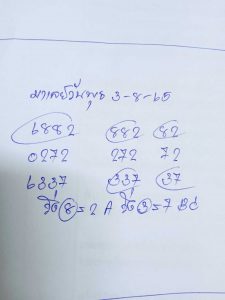 มาเลย์วันพุธ 3-8-65
6882 882 82
0272 272 72
6337 337 37
วิ่ง 8=2 A วิ่ง 3=7 BC